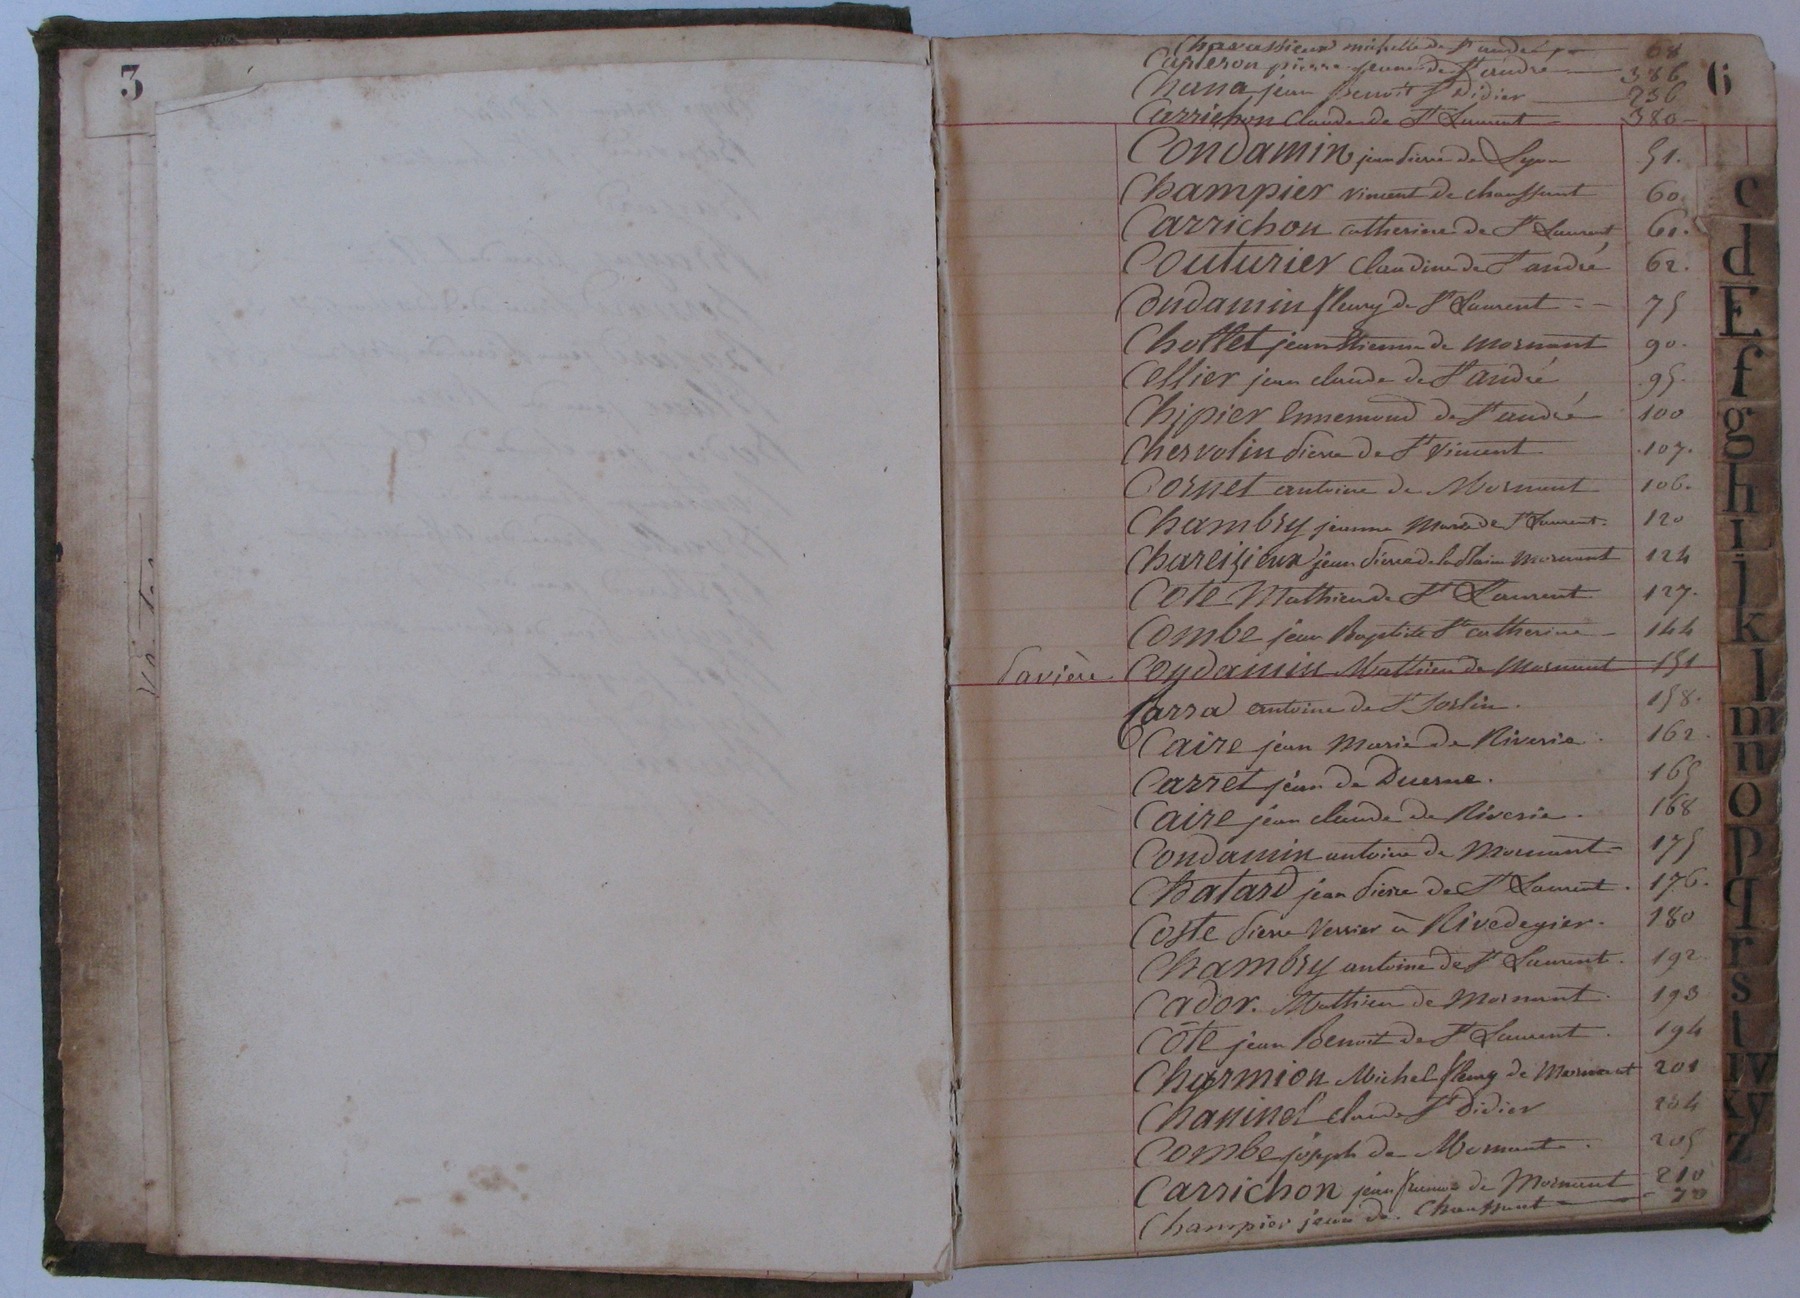 3
6
Chavassieux michelle de St andré 68
Carteron pierre jeune de St andré 386
Chana jean Benoit St Didier 236
Carrichon Claude de St Laurent 380
Condamin jean Pierre de Lyon 51.
Champier vincent de chaussant 60
Carrichon catherine de St Laurent 61.
Couturier Claudine de St andré 62.
Condamin fleury de St Laurent 75
Chollet jean Etienne de mornant 90.
Cellier jean claude de St andré 95.
Chipier Ennemond de St andré 100
Chervolin Pierre de St Vincent 107.
Cornet antoine de Mornant 106.
Chambry jeanne Marie de St Laurent. 120
Chareizieux jean Pierre de la Plaine Mornant 124
Cote Mathieu de St Laurent 127.
Combe jean Baptiste Ste catherine 144
Pavière Coydamin Mathieu de Mornant 151
Carra antoine de St Sorlin. 158.
Caire jean Marie de Riverie. 162.
Carret jean de Duerne. 165
Caire jean claude de Riverie. 168
Condamin antoine de Mornant 175
Chatard jean Pierre de St Laurent. 176.
Coste Pierre Verrier à Rivedegier. 180
Chambry antoine de St Laurent. 192
Cador. Mathieu de Mornant. 193
Côte jean Benoit de St Laurent. 194
Charmion Michel fleury de Mornant 201
Chaninel claude St Didier 204
Combe joseph de Mornant. 205
Carrichon jean de Mornant 210
Champier jean de Chaussant 70
c
d
E
f
g
h
I
j
k
l
m
n
o
p
q
r
s
t
v
xy
z